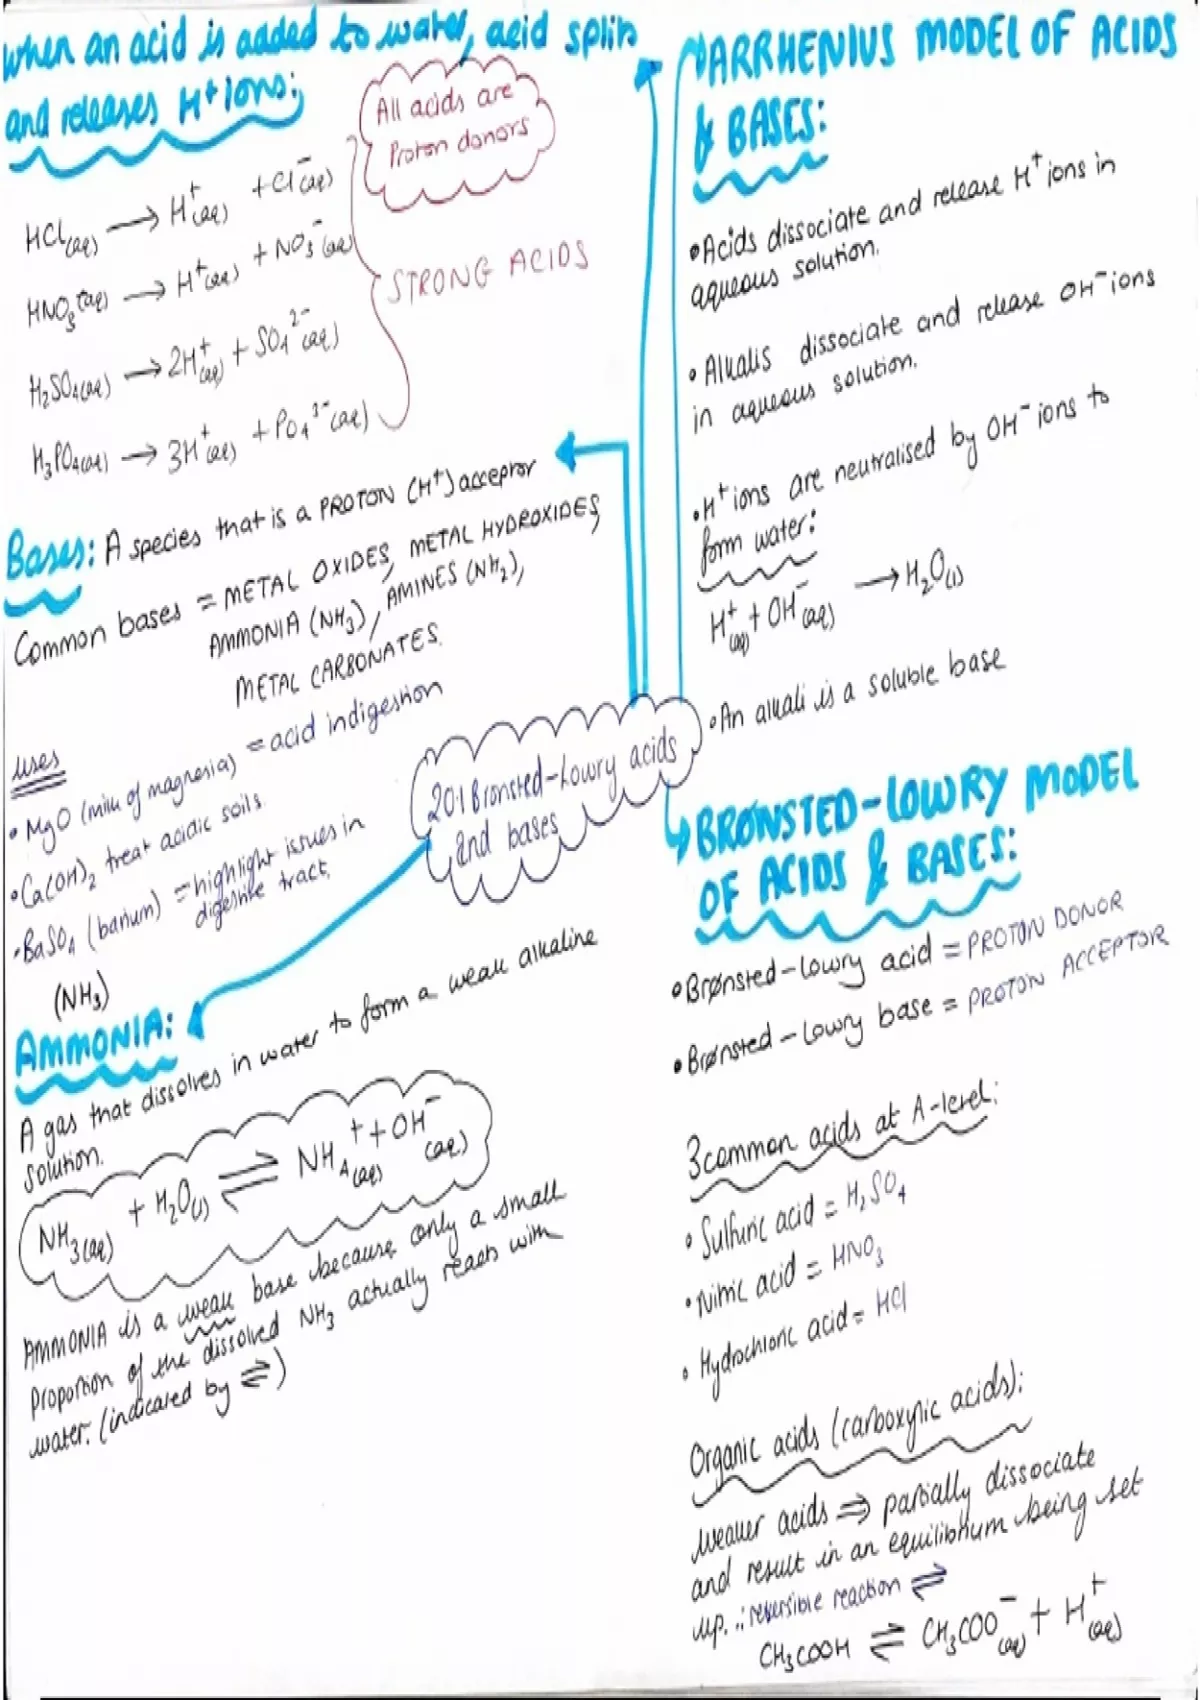 when an acid is added to water, acid splits
and releases H⁺ ions:
All acids are
Proton donors
HCl(aq) → H⁺(aq) + Cl⁻(aq)
HNO₃(aq) → H⁺(aq) + NO₃⁻(aq)
STRONG ACIDS
H₂SO₄(aq) → 2H⁺(aq) + SO₄²⁻(aq)
H₃PO₄(aq) → 3H⁺(aq) + PO₄³⁻(aq)
Bases: A species that is a PROTON (H⁺) acceptor
Common bases = METAL OXIDES, METAL HYDROXIDES,
AMMONIA (NH₃), AMINES (NH₂),
METAL CARBONATES.
uses
• MgO (milk of magnesia) = acid indigestion
• Ca(OH)₂ treat acidic soils.
• BaSO₄ (barium) = highlight issues in
digestive tract.
20.1 Bronsted-Lowry acids
and bases
(NH₃)
AMMONIA:
A gas that dissolves in water to form a weak alkaline
solution.
NH₃(aq) + H₂O(l) ⇌ NH₄⁺(aq) + OH⁻(aq)
AMMONIA is a weak base because only a small
proportion of the dissolved NH₃ actually reacts with
water. (indicated by ⇌)
ARRHENIUS MODEL OF ACIDS
& BASES:
• Acids dissociate and release H⁺ ions in
aqueous solution.
• Alkalis dissociate and release OH⁻ ions
in aqueous solution.
• H⁺ ions are neutralised by OH⁻ ions to
form water:
H⁺(aq) + OH⁻(aq) → H₂O(l)
• An alkali is a soluble base
BRØNSTED-LOWRY MODEL
OF ACIDS & BASES:
• Brønsted-Lowry acid = PROTON DONOR
• Brønsted-Lowry base = PROTON ACCEPTOR
3 common acids at A-level:
• Sulfuric acid = H₂SO₄
• Nitric acid = HNO₃
• Hydrochloric acid = HCl
Organic acids (carboxylic acids):
weaker acids ⇒ partially dissociate
and result in an equilibrium being set
up. ∴ reversible reaction ⇌
CH₃COOH ⇌ CH₃COO⁻(aq) + H⁺(aq)